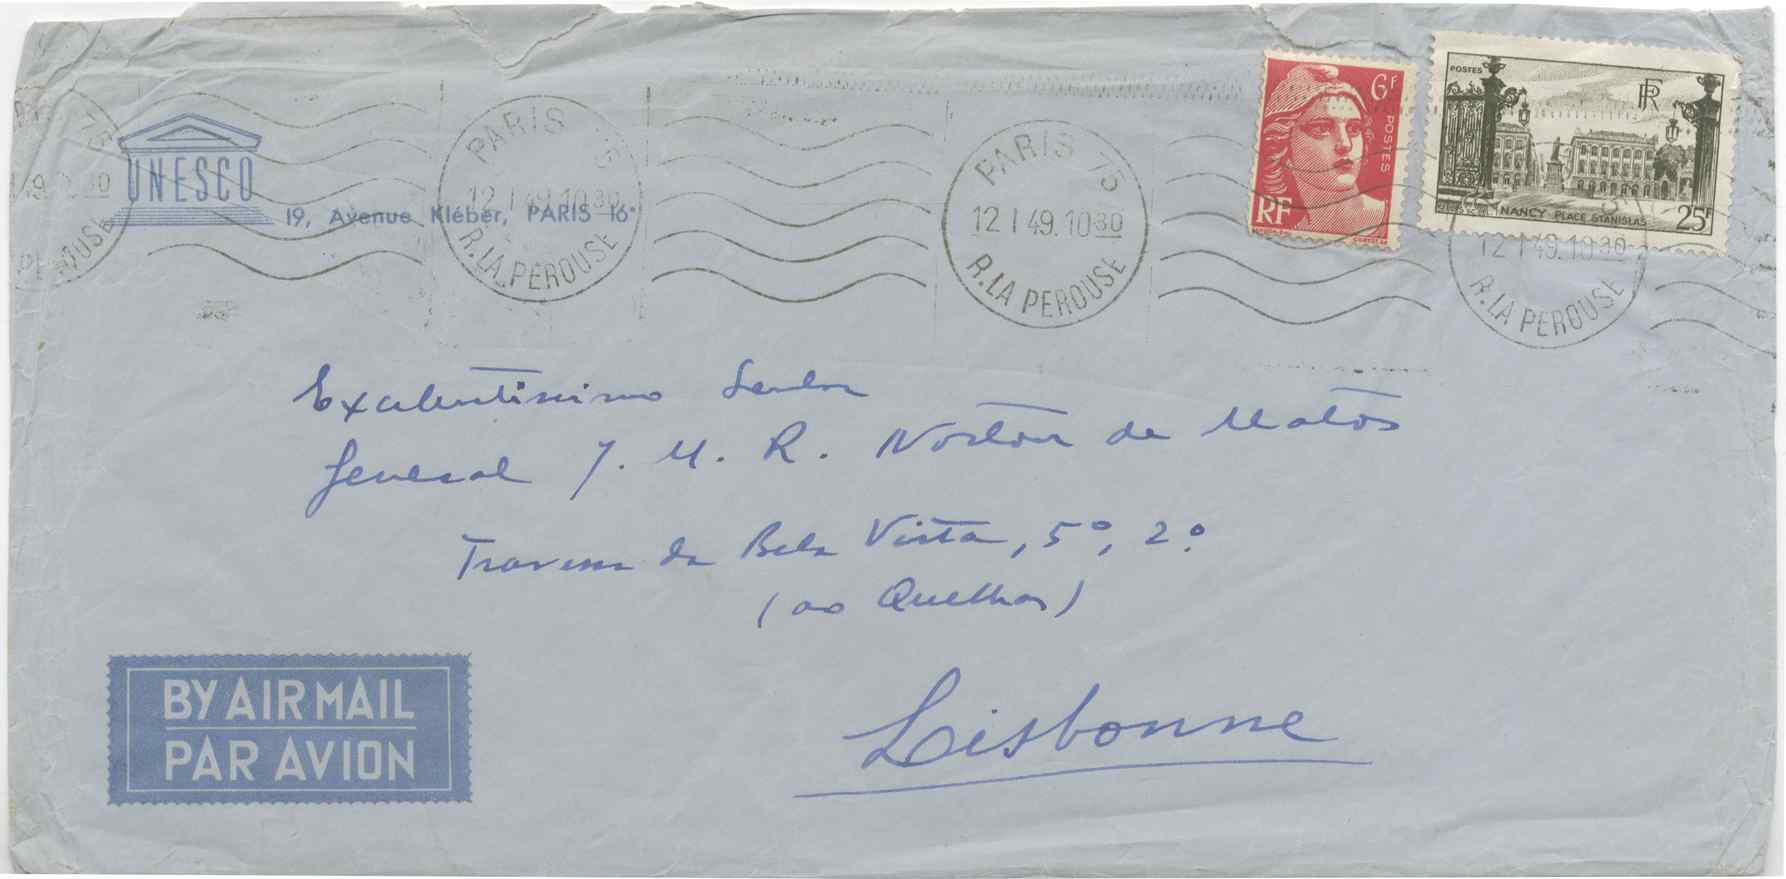 UNESCO
19, Avenue Kléber, PARIS 16e
PARIS 75
12 I 49. 10 30
R. LA PEROUSE
PARIS 75
12 I 49. 10 30
R. LA PEROUSE
6F
POSTES
RF
POSTES
RF
NANCY PLACE STANISLAS
25F
12 I 49. 10 30
R. LA PEROUSE
Excelentissimo Senhor
General J. M. R. Norton de Matos
Travessa da Bela Vista, 5º, 2º
(ao Quelhas)
Lisbonne
BY AIR MAIL
PAR AVION